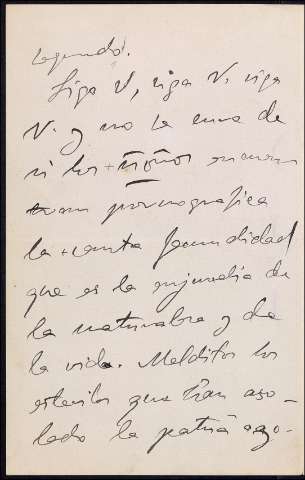 segundo.
Siga V, siga V. siga
V. y no la una de
ni los + ñoños
pornografica
la + santa fecundidad
que es la enjundia de
la naturaleza y de
la vida. Malditos los
esteriles que han aso-
lado la patria azo-